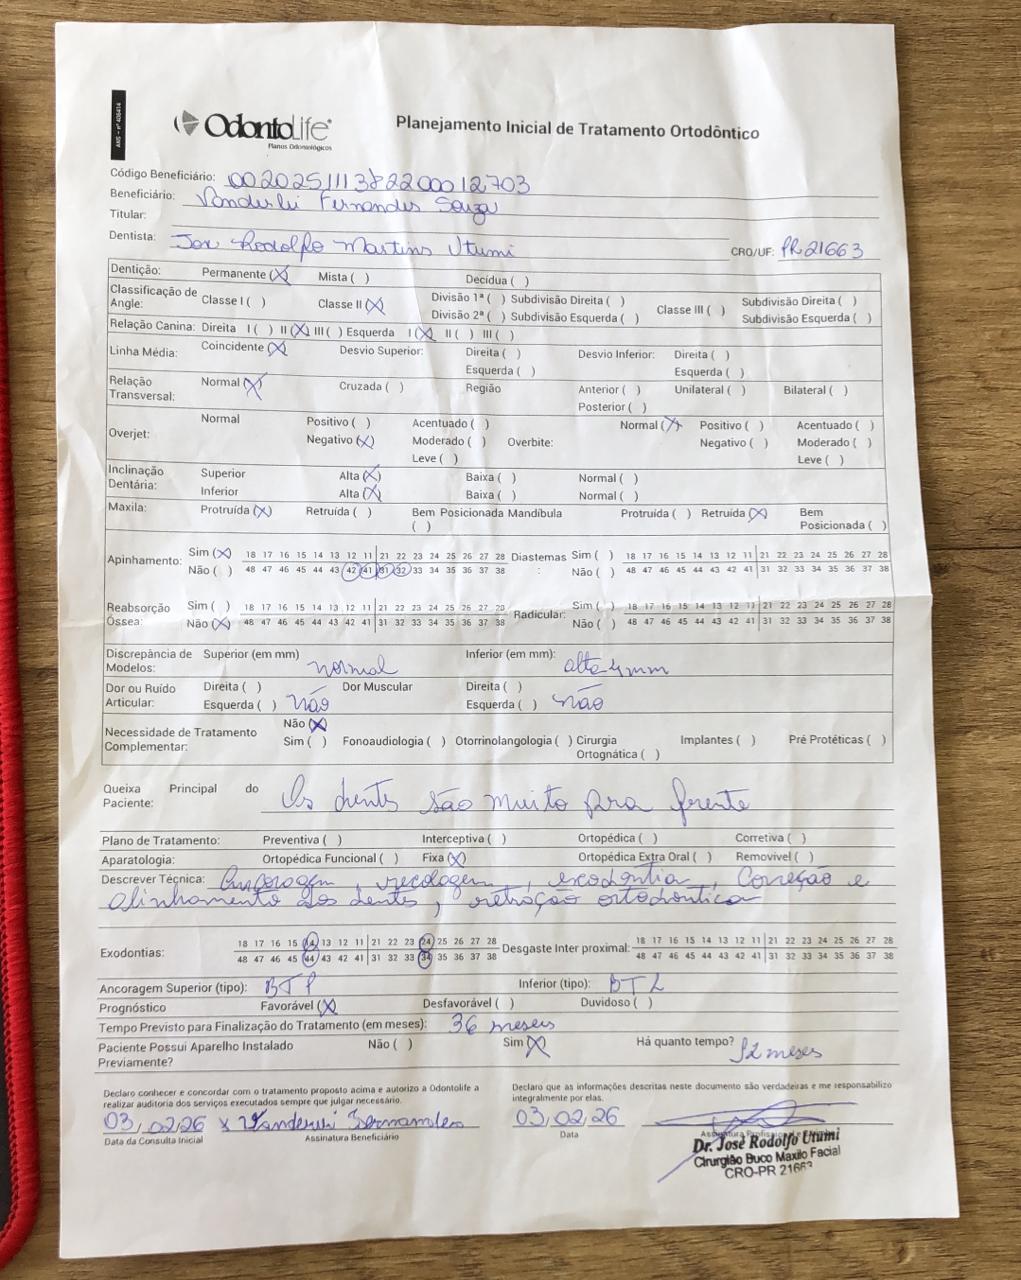 ANS - nº 406414
OdontoLife
Planos Odontológicos
Planejamento Inicial de Tratamento Ortodôntico
Código Beneficiário: 00202511138220001 2703
Beneficiário: Vanderlei Fernandes Souza
Titular:
Dentista: Jose Rodolfo Martins Utumi CRO/UF: PR 21663
Dentição: Permanente (X) Mista ( ) Decídua ( )
Classificação de Angle: Classe I ( ) Classe II (X) Divisão 1ª ( ) Subdivisão Direita ( ) Classe III ( ) Subdivisão Direita ( )
Divisão 2ª ( ) Subdivisão Esquerda ( ) Subdivisão Esquerda ( )
Relação Canina: Direita I ( ) II (X) III ( ) Esquerda I (X) II ( ) III ( )
Linha Média: Coincidente (X) Desvio Superior: Direita ( ) Desvio Inferior: Direita ( )
Esquerda ( ) Esquerda ( )
Relação Transversal: Normal (X) Cruzada ( ) Região Anterior ( ) Unilateral ( ) Bilateral ( )
Posterior ( )
Overjet: Normal Positivo ( ) Acentuado ( ) Overbite: Normal (X) Positivo ( ) Acentuado ( )
Negativo (X) Moderado ( ) Negativo ( ) Moderado ( )
Leve ( ) Leve ( )
Inclinação Dentária: Superior Alta (X) Baixa ( ) Normal ( )
Inferior Alta (X) Baixa ( ) Normal ( )
Maxila: Protruída (X) Retruída ( ) Bem Posicionada ( ) Mandíbula Protruída ( ) Retruída (X) Bem Posicionada ( )
Apinhamento: Sim (X) 18 17 16 15 14 13 12 11 21 22 23 24 25 26 27 28 Diastemas: Sim ( ) 18 17 16 15 14 13 12 11 21 22 23 24 25 26 27 28
Não ( ) 48 47 46 45 44 43 42 41 31 32 33 34 35 36 37 38 Não ( ) 48 47 46 45 44 43 42 41 31 32 33 34 35 36 37 38
Reabsorção Óssea: Sim ( ) 18 17 16 15 14 13 12 11 21 22 23 24 25 26 27 28 Radicular: Sim ( ) 18 17 16 15 14 13 12 11 21 22 23 24 25 26 27 28
Não (X) 48 47 46 45 44 43 42 41 31 32 33 34 35 36 37 38 Não ( ) 48 47 46 45 44 43 42 41 31 32 33 34 35 36 37 38
Discrepância de Modelos: Superior (em mm) normal Inferior (em mm): alta 4mm
Dor ou Ruído Articular: Direita ( ) Dor Muscular Direita ( )
Esquerda ( ) não Esquerda ( ) não
Necessidade de Tratamento Complementar: Não (X)
Sim ( ) Fonoaudiologia ( ) Otorrinolangologia ( ) Cirurgia Ortognática ( ) Implantes ( ) Pré Protéticas ( )
Queixa Principal do Paciente: Os dentes são muito pra frente
Plano de Tratamento: Preventiva ( ) Interceptiva ( ) Ortopédica ( ) Corretiva ( )
Aparatologia: Ortopédica Funcional ( ) Fixa (X) Ortopédica Extra Oral ( ) Removível ( )
Descrever Técnica: Ancoragem, recolagem, exodontia, Correção e
alinhamento dos dentes, retração ortodontica
Exodontias: 18 17 16 15 14 13 12 11 21 22 23 24 25 26 27 28 Desgaste Inter proximal: 18 17 16 15 14 13 12 11 21 22 23 24 25 26 27 28
48 47 46 45 44 43 42 41 31 32 33 34 35 36 37 38 48 47 46 45 44 43 42 41 31 32 33 34 35 36 37 38
Ancoragem Superior (tipo): BTP Inferior (tipo): BTL
Prognóstico Favorável (X) Desfavorável ( ) Duvidoso ( )
Tempo Previsto para Finalização do Tratamento (em meses): 36 meses
Paciente Possui Aparelho Instalado Previamente? Não ( ) Sim (X) Há quanto tempo? 12 meses
Declaro conhecer e concordar com o tratamento proposto acima e autorizo a Odontolife a
realizar auditoria dos serviços executados sempre que julgar necessário.
Declaro que as informações descritas neste documento são verdadeiras e me responsabilizo
integralmente por elas.
03/02/26 x Vanderlei Fernandes 03/02/26
Data da Consulta Inicial Assinatura Beneficiário Data
Dr. José Rodolfo Utumi
Cirurgião Buco Maxilo Facial
CRO-PR 21663